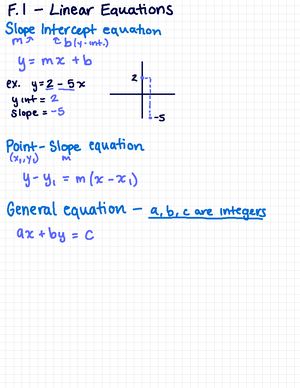 F.1 – Linear Equations
Slope Intercept equation
m↗ ↖b(y-int.)
y = mx + b
ex. y = 2 - 5x
y int = 2
Slope = -5
2
-5
Point-Slope equation
(x₁,y₁) m
y - y₁ = m(x - x₁)
General equation – a, b, c are integers
ax + by = c